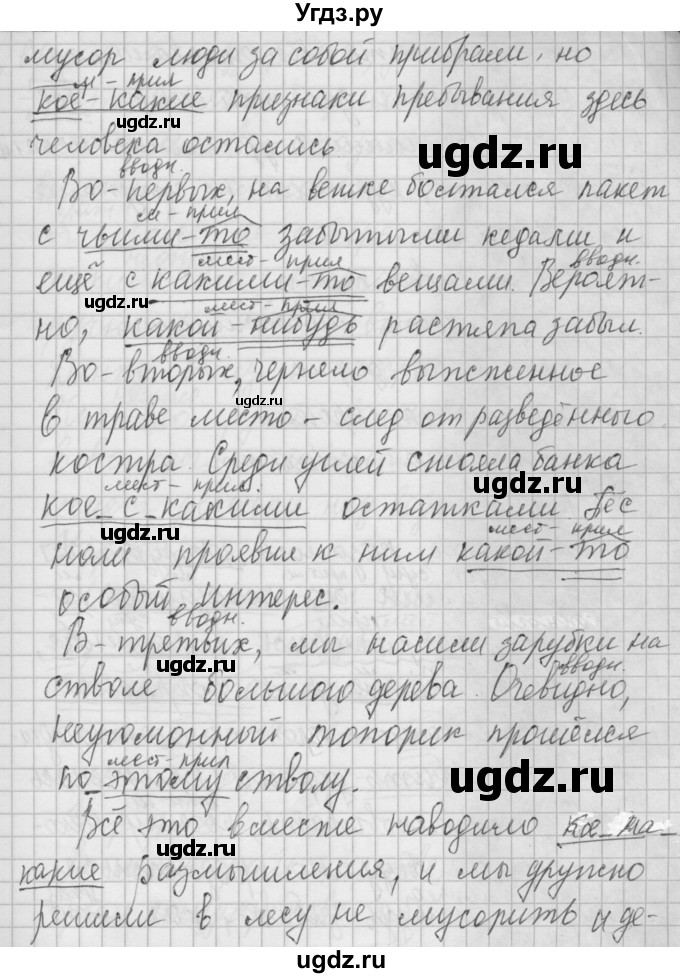 Угдз.ру
мусор люди за собой прибрали, но
м - прил
кое-какие признаки пребывания здесь
ugdz.ru
ugdz.ru
человека остались
вводн.
Во-первых, на ветке болтался пакет
м - прил
ugdz.ru
с чьими-то забытыми кедами и
мест - прил
вводн.
ещё с какими-то вещами. Вероят-
ugdz.ru
мест - прил
но, какой-нибудь растяпа забыл.
вводн.
ugdz.ru
Во-вторых, чернело выжженное
ugdz.ru
в траве место – след от разведённого
костра. Среди углей стояла банка
ugdz.ru
мест - прил.
кое-с-какими остатками Пёс
ugdz.ru
мест - прил
Моли проявил к ним какой-то
ugdz.ru
особый интерес.
вводн.
В-третьих, мы нашли зарубки на
ugdz.ru
вводн.
стволе большого дерева. Очевидно,
неугомонный топорик прошёлся
ugdz.ru
мест - прил
по этому стволу.
ugdz.ru
Всё это вместе наводило кое-на-
ugdz.ru
какие размышления, и мы дружно
ugdz.ru
решили в лесу не мусорить и де-
ugdz.ru
ugdz.ru